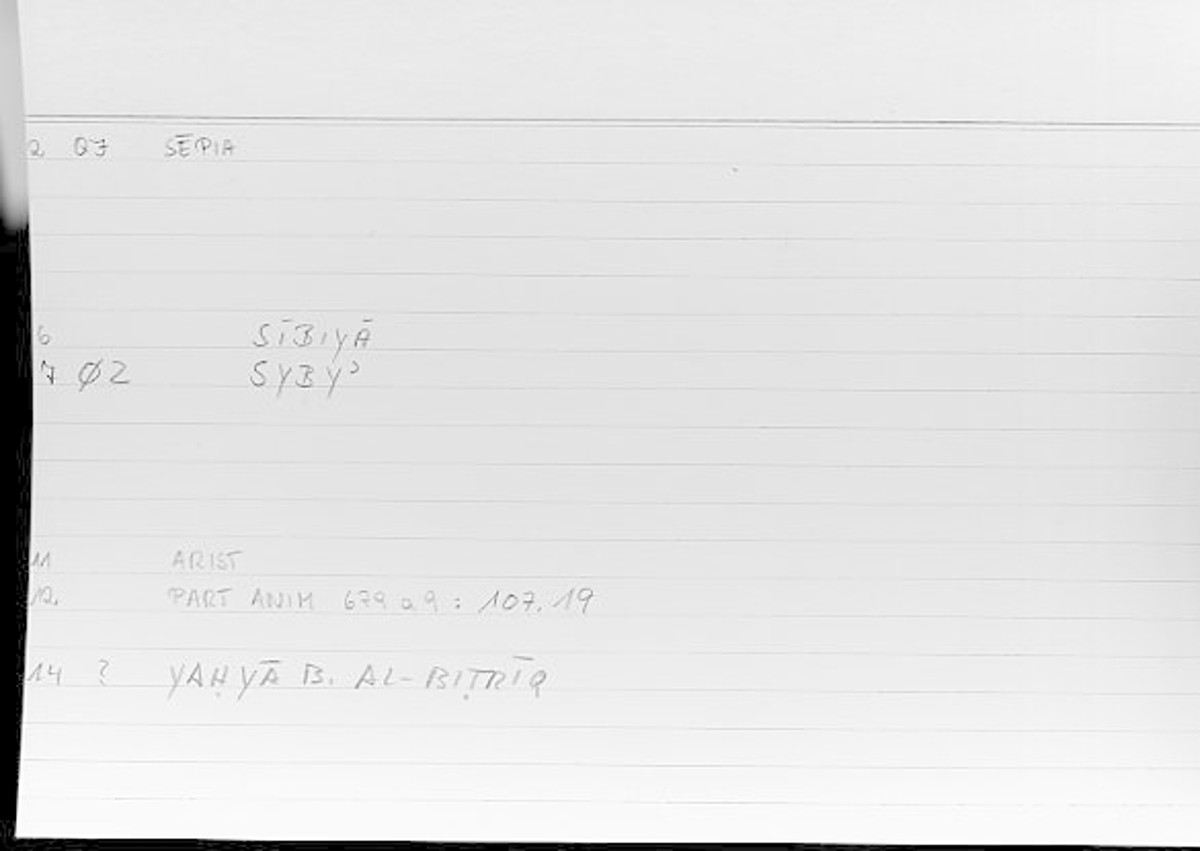 2 07 SĒPIA
6 SĪBIYĀ
7 Ø2 SYBYʾ
11 ARIST
12 PART ANIM 679 a 9 : 107.19
14 ? YAḤYĀ B. AL-BIṬRĪQ